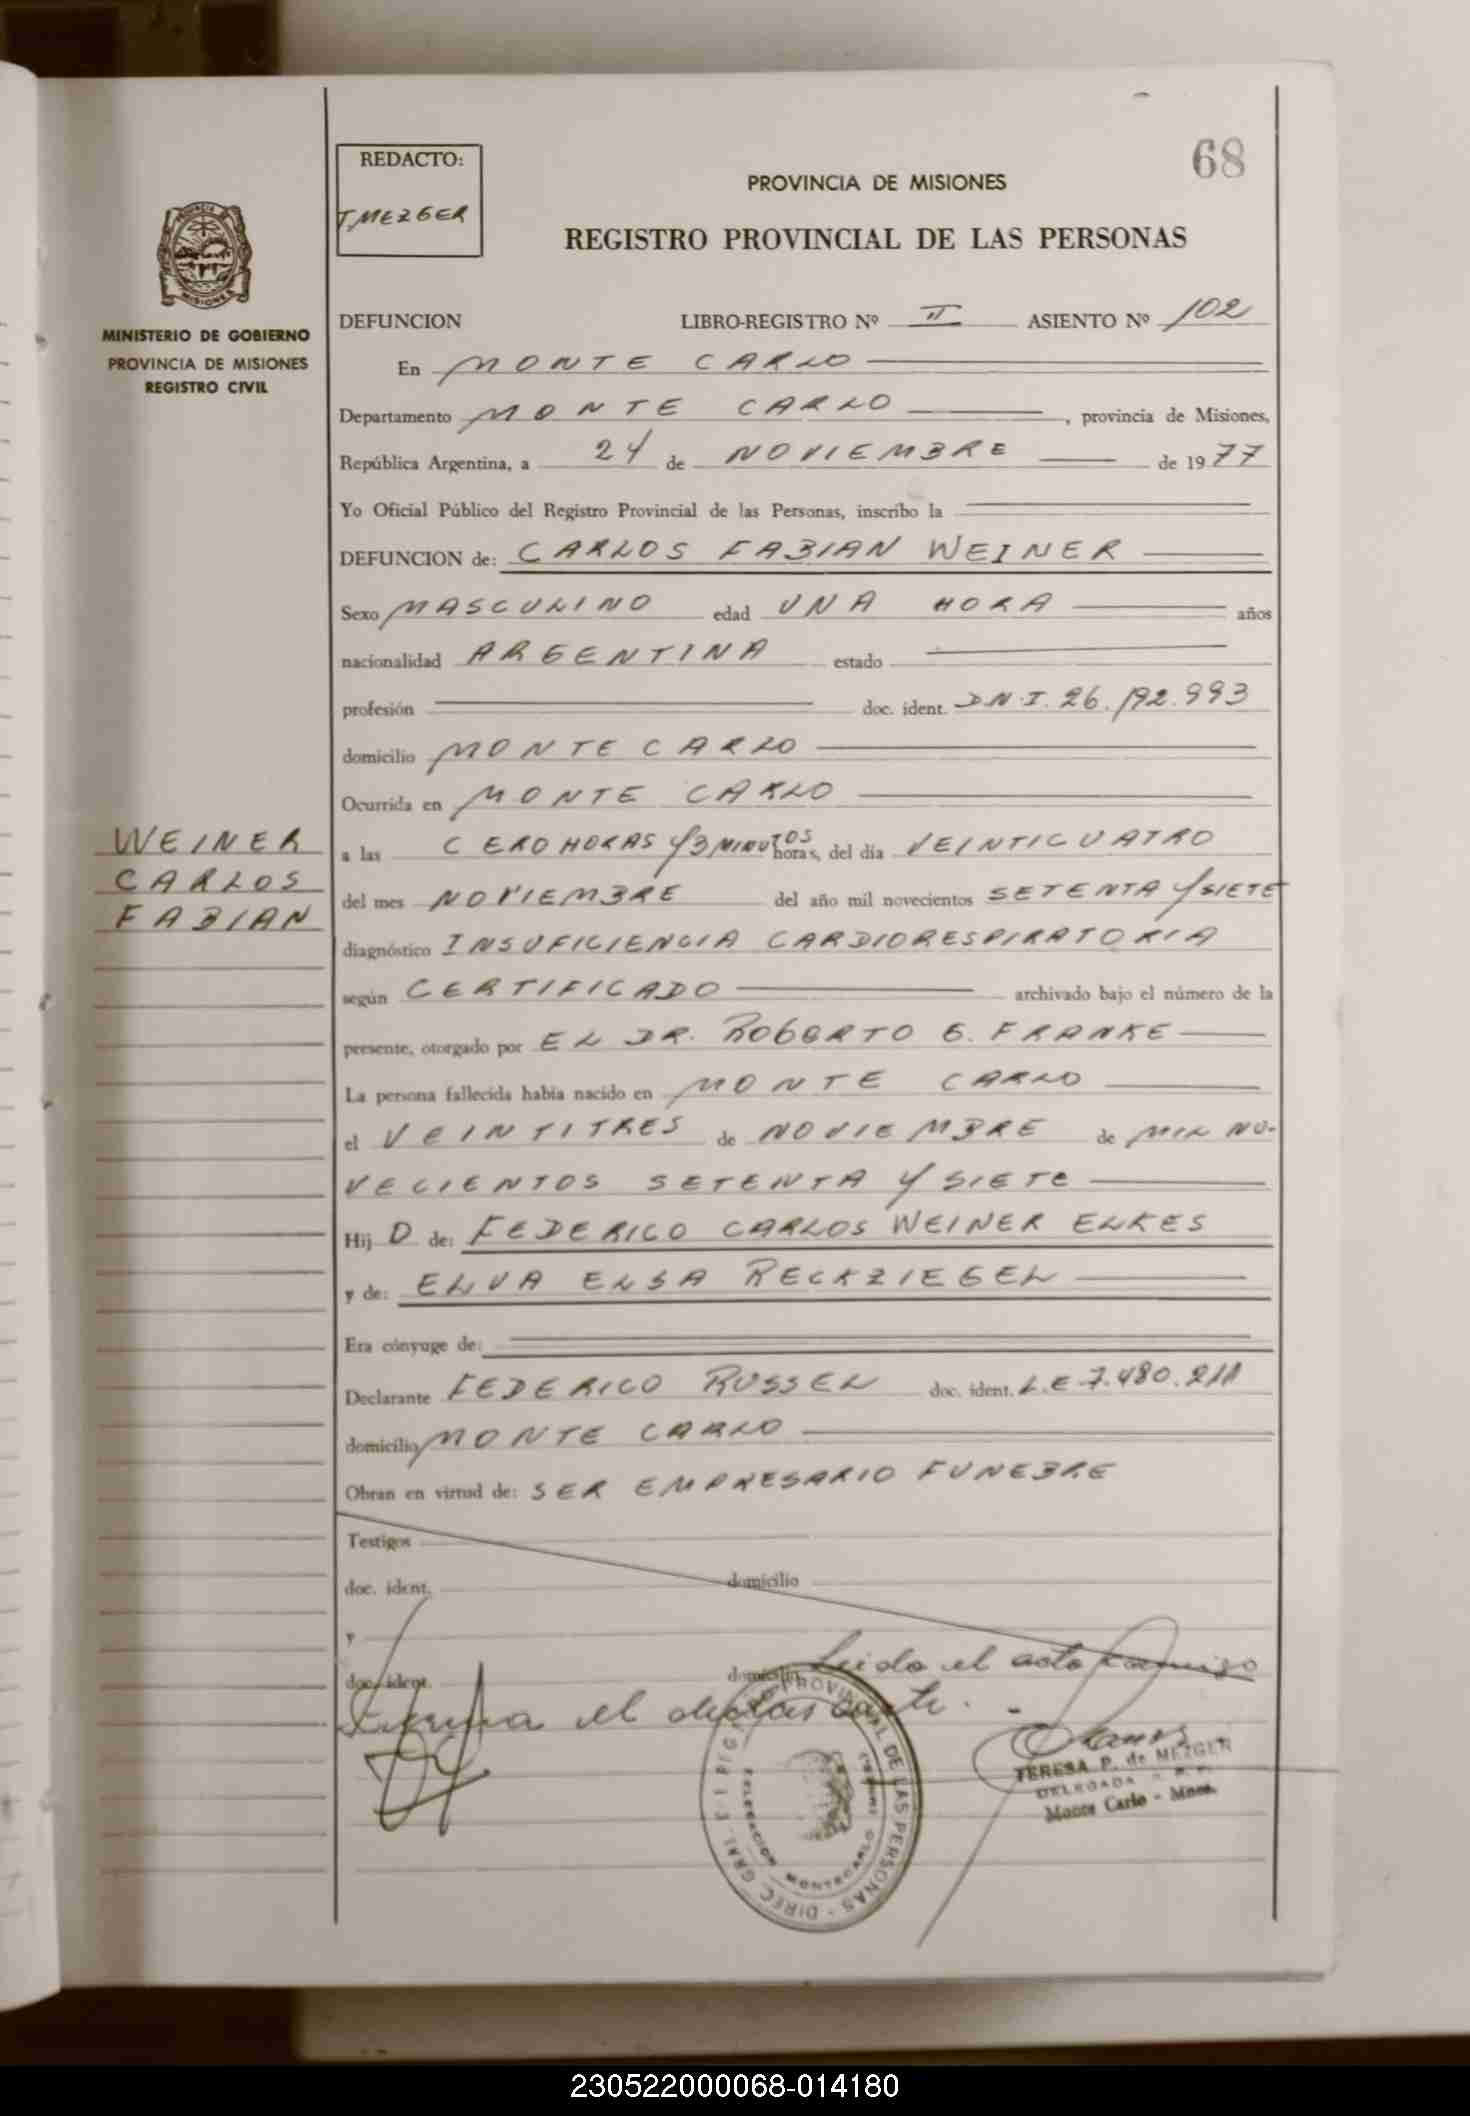 68
REDACTO:
T. MEZGER
PROVINCIA DE MISIONES
REGISTRO PROVINCIAL DE LAS PERSONAS
PROVINCIA DE
MISIONES
MINISTERIO DE GOBIERNO
PROVINCIA DE MISIONES
REGISTRO CIVIL
DEFUNCION LIBRO-REGISTRO Nº II ASIENTO Nº 102
En MONTE CARLO
Departamento MONTE CARLO , provincia de Misiones,
República Argentina, a 24 de NOVIEMBRE de 1977
Yo Oficial Público del Registro Provincial de las Personas, inscribo la
DEFUNCION de: CARLOS FABIAN WEINER
Sexo MASCULINO edad UNA HORA años
nacionalidad ARGENTINA estado
profesión doc. ident. D.N.I. 26.192.993
domicilio MONTE CARLO
Ocurrida en MONTE CARLO
WEINER
CARLOS
FABIAN
a las CERO HORAS Y 3 MINUTOS horas, del día VEINTICUATRO
del mes NOVIEMBRE del año mil novecientos SETENTA Y SIETE
diagnóstico INSUFICIENCIA CARDIORESPIRATORIA
según CERTIFICADO archivado bajo el número de la
presente, otorgado por EL DR. ROBERTO G. FRANKE
La persona fallecida había nacido en MONTE CARLO
el VEINTITRES de NOVIEMBRE de MIL NO-
VECIENTOS SETENTA Y SIETE
Hij O de: FEDERICO CARLOS WEINER ELKES
y de: ELVA ELSA RECKZIEGEL
Era cónyuge de:
Declarante FEDERICO RUSSEL doc. ident. L.E. 7.480.211
domicilio MONTE CARLO
Obran en virtud de: SER EMPRESARIO FUNEBRE
Testigos
doc. ident. domicilio
y
doc. ident. domicilio Leida el acta conmigo
Firma el declarante.
DIREC. GRAL. DEL REGISTRO PROVINCIAL DE LAS PERSONAS
DELEGACION MONTECARLO
TERESA P. de MEZGER
DELEGADA R. P. P.
Monte Carlo - Mnes.
230522000068-014180